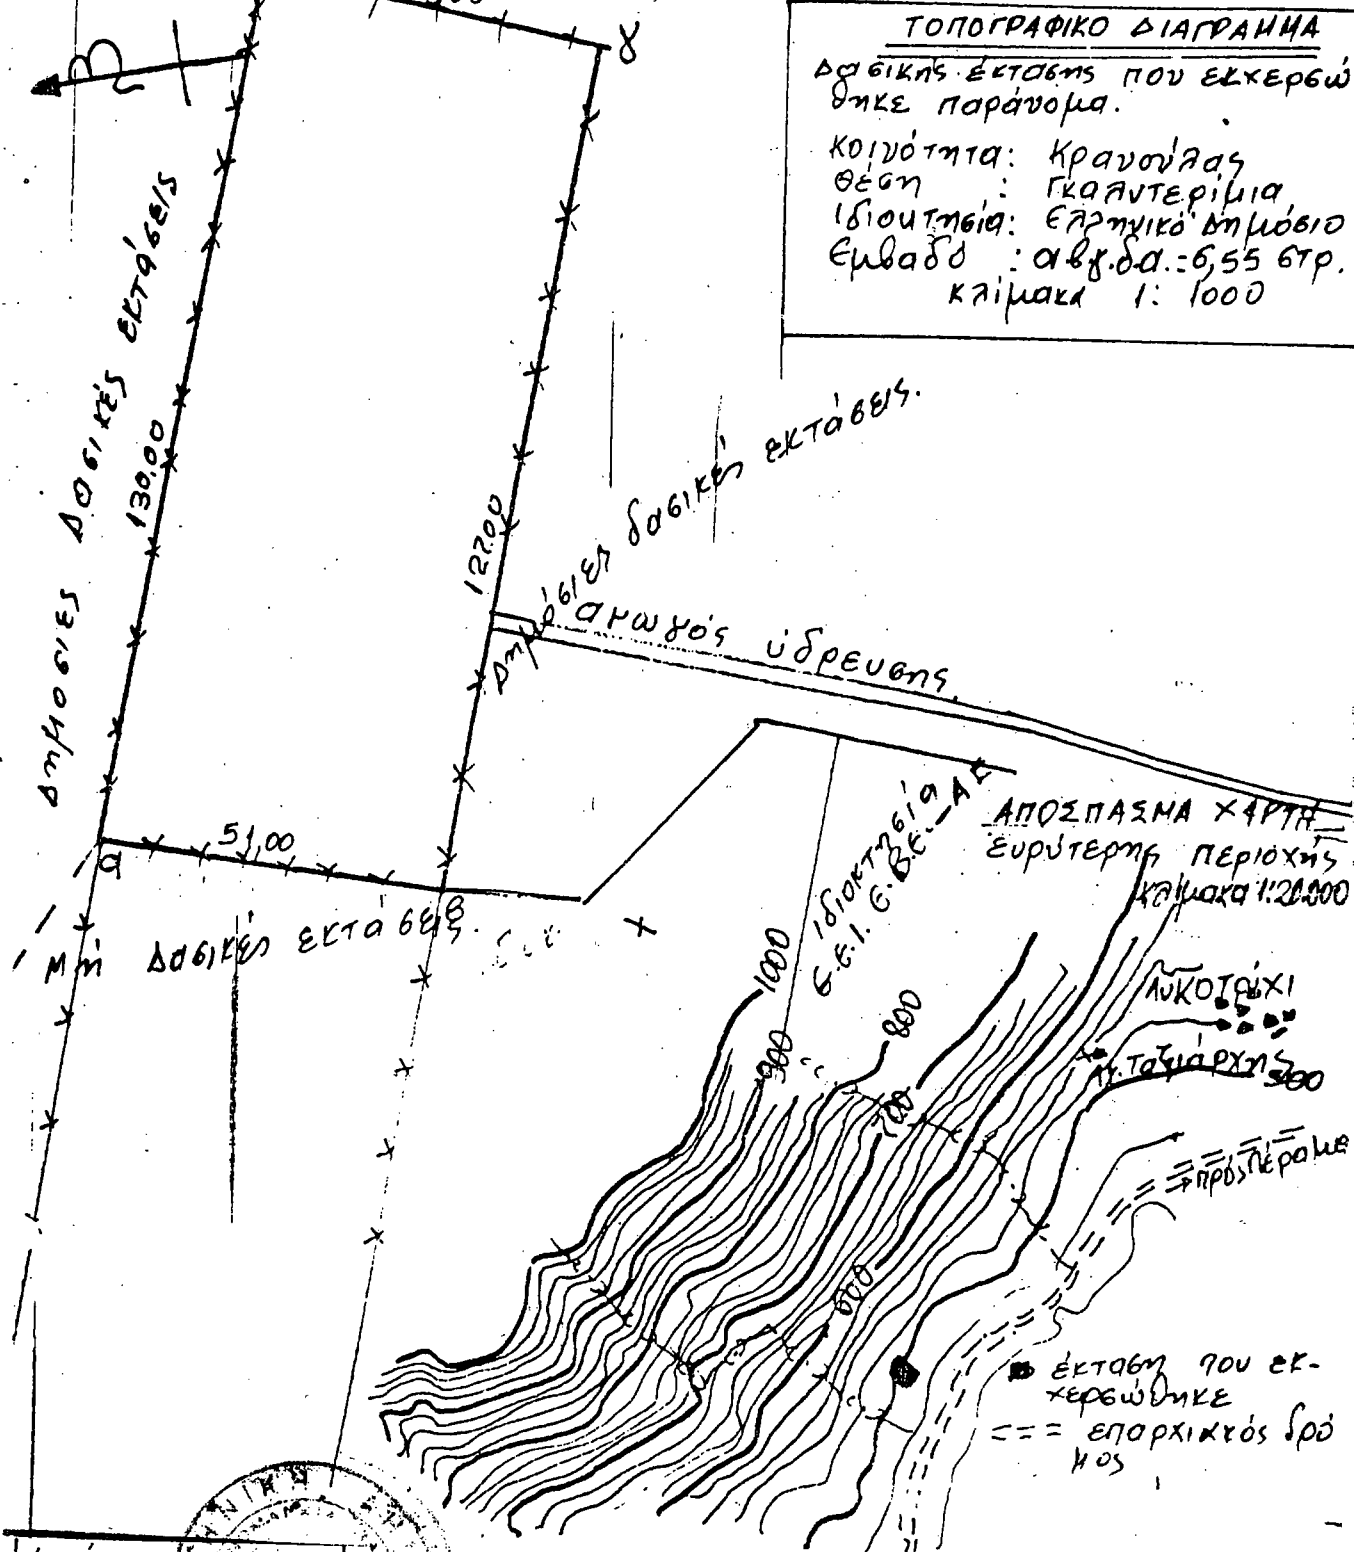 ΤΟΠΟΓΡΑΦΙΚΟ ΔΙΑΓΡΑΜΜΑ
Δασικής έκτασης που εκχερσώ
θηκε παράνομα.
Κοινότητα: Κρανούλας
Θέση : Γκαλντερίμια
Ιδιοκτησία: Ελληνικό Δημόσιο
Εμβαδό : αβγ.δα.=6,55 στρ.
κλίμακα 1: 1000
Β
γ
Δημόσιες Δασικές εκτάσεις
130.00
127.00
Δημόσιες δασικές εκτάσεις.
αγωγός ύδρευσης
51,00
α
β
Μή Δασικές εκτάσεις.
ιδιοκτησία
Ε.Β.Ε.-ΑΕ
ΑΠΟΣΠΑΣΜΑ ΧΑΡΤΗ
ευρύτερης περιοχής
κλίμακα 1:20.000
1000
900
800
700
600
500
Λυκοτρίχι
Αγ. Ταξιάρχης
πρός Πέραμα
έκταση που εκ-
χερσώθηκε
=== επαρχιακός δρό
μος